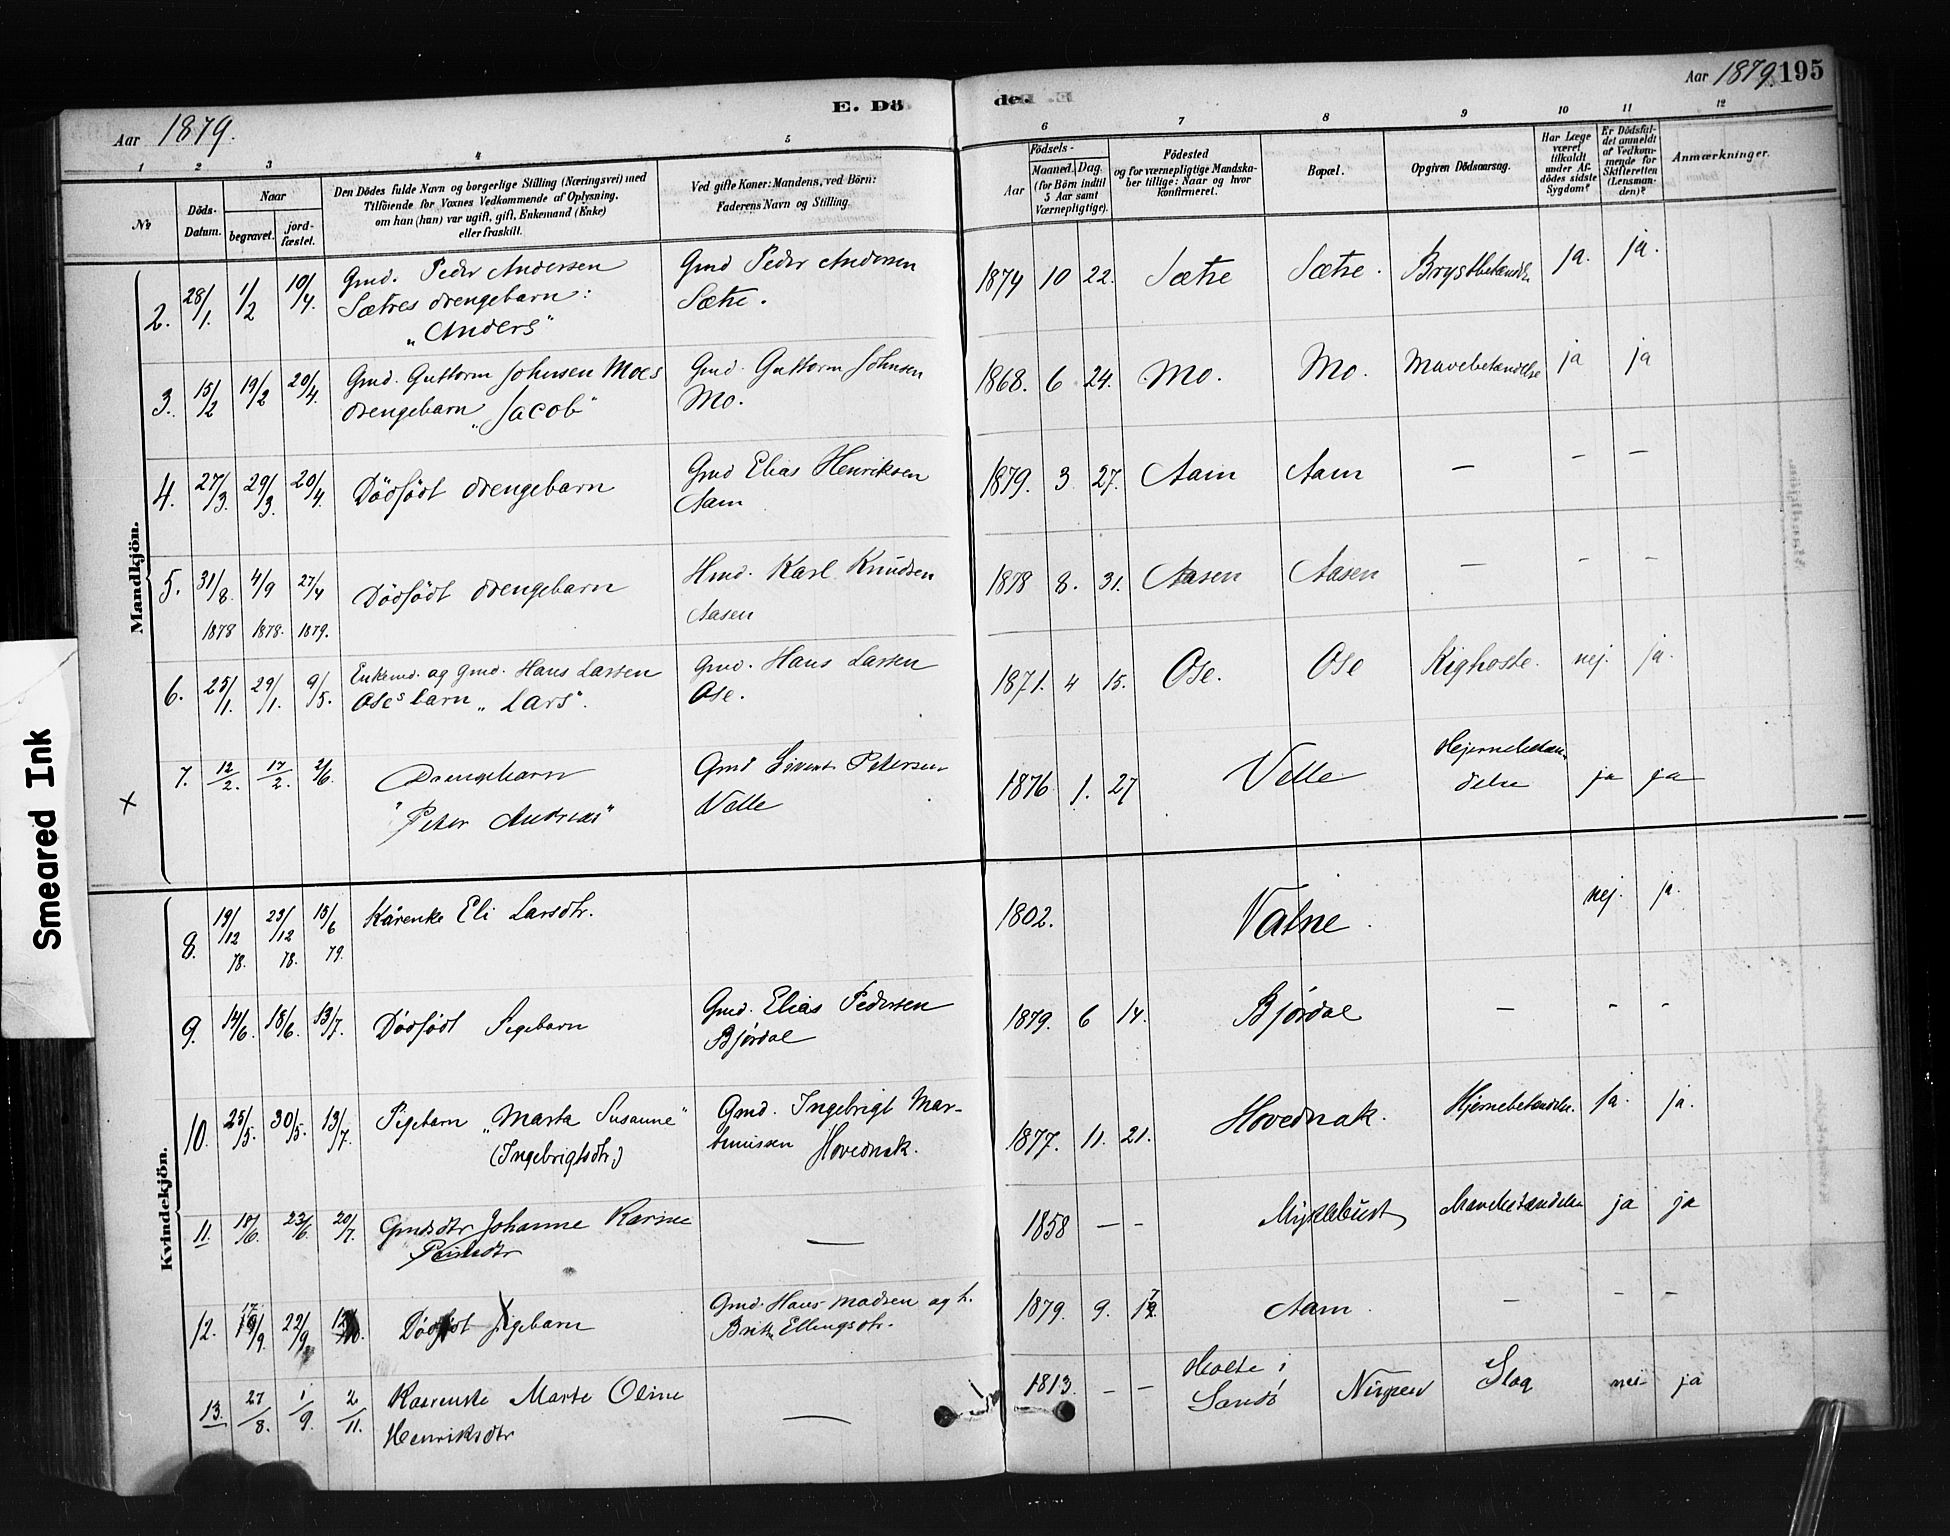 Aar 1879.
E. Dö
de. E
Aar 1879 195
1 2 3 4 5 6 7 8 9 10 11 12
No
Döds-Datum.
Naar
begravet.
jord-fæstet.
Den Dödes fulde Navn og borgerlige Stilling (Næringsvei) med
Tilföiende for Voxnes Vedkommende af Oplysning,
om han (hun) var ugift, gift, Enkemand (Enke)
eller fraskilt.
Ved gifte Koner: Mandens, ved Börn:
Faderens Navn og Stilling.
Födsels-
Aar
Maaned. Dag.
(for Börn indtil
5 Aar samt
Værnepligtige).
Födested
og for værnepligtige Mandska-
ber tillige: Naar og hvor
konfirmeret.
Bopæl.
Opgiven Dödsaarsag.
Har Læge
været
tilkaldt
under Af-
dödes sidste
Sygdom?
Er Dödsfal-
det anmeldt
af Vedkom-
mende for
Skifteretten
(Lensman-
den)?
Anmærkninger.
Mandkjön.
2. 28/1. 1/2 10/4. Gmd. Peder Andersen Gmd Peder Andersen 1874 10 22. Sætre Sætre. Brystbetændelse ja. ja.
Sætres drengebarn: Sætre.
"Anders"
3. 15/2 19/2 20/4. Gmd. Guttorm Johnsen Moes Gmd. Guttorm Johnsen 1868. 6 24. Mo. Mo. Mavebetændelse ja ja
drengebarn "Jacob" Mo.
4. 27/3. 29/3. 20/4. Dödfödt drengebarn Gmd Elias Henriksen 1879. 3 27. Aam Aam — – –
Aam
5. 31/8. 4/9 27/4 Dödfödt drengebarn Hmd. Karl Knudsen 1878 8. 31. Aasen Aasen — – –
1878 1878. 1879. Aasen
6. 25/1. 29/1. 9/5. Enkemd. og Gmd. Hans Larsen Gmd. Hans Larsen 1871. 4 15. Ose. Ose Kighoste. nej. ja.
Oses barn "Lars". Ose.
x 7. 12/2. 17/2. 2/6. Drengebarn Gmd Sivert Petersen 1876 1. 27 Velle Hjernebetæn-
"Peter Andreas" Velle delse ja ja
Kvindekjön.
8. 19/12 78. 23/12 78. 15/6 79. Kårenke Eli Larsdtr. 1802. Vatne. nej. ja.
9. 14/6. 18/6. 13/7. Dödfödt Pigebarn Gmd. Elias Pedersen 1879. 6 14. Bjørdal — – –
Bjørdal
10. 25/5. 30/5. 13/7. Pigebarn "Marta Susanne" Gmd. Ingebrigt Mar- 1877. 11. 21. Hovednak. Hjernebetændelse. ja. ja.
(Ingebrigtsdtr.) tinussen Hovednak.
11. 18/6. 23/6. 20/7. Gmdsdtr Johanne Karine — 1858 – – Myklebust Mavebetændelse ja ja
12. 22/9. Dödfödt Pigebarn Gmd. Hans Madsen og h. 1879. 9. Aam. – – –
Brithe Ellingsdtr.
13. 27/8. 1/9. 2/11. Kaarenske Marte Oline — 1813. – – Holte i Nupen Slag nei ja
Henriksdtr Sandö
Smeared Ink